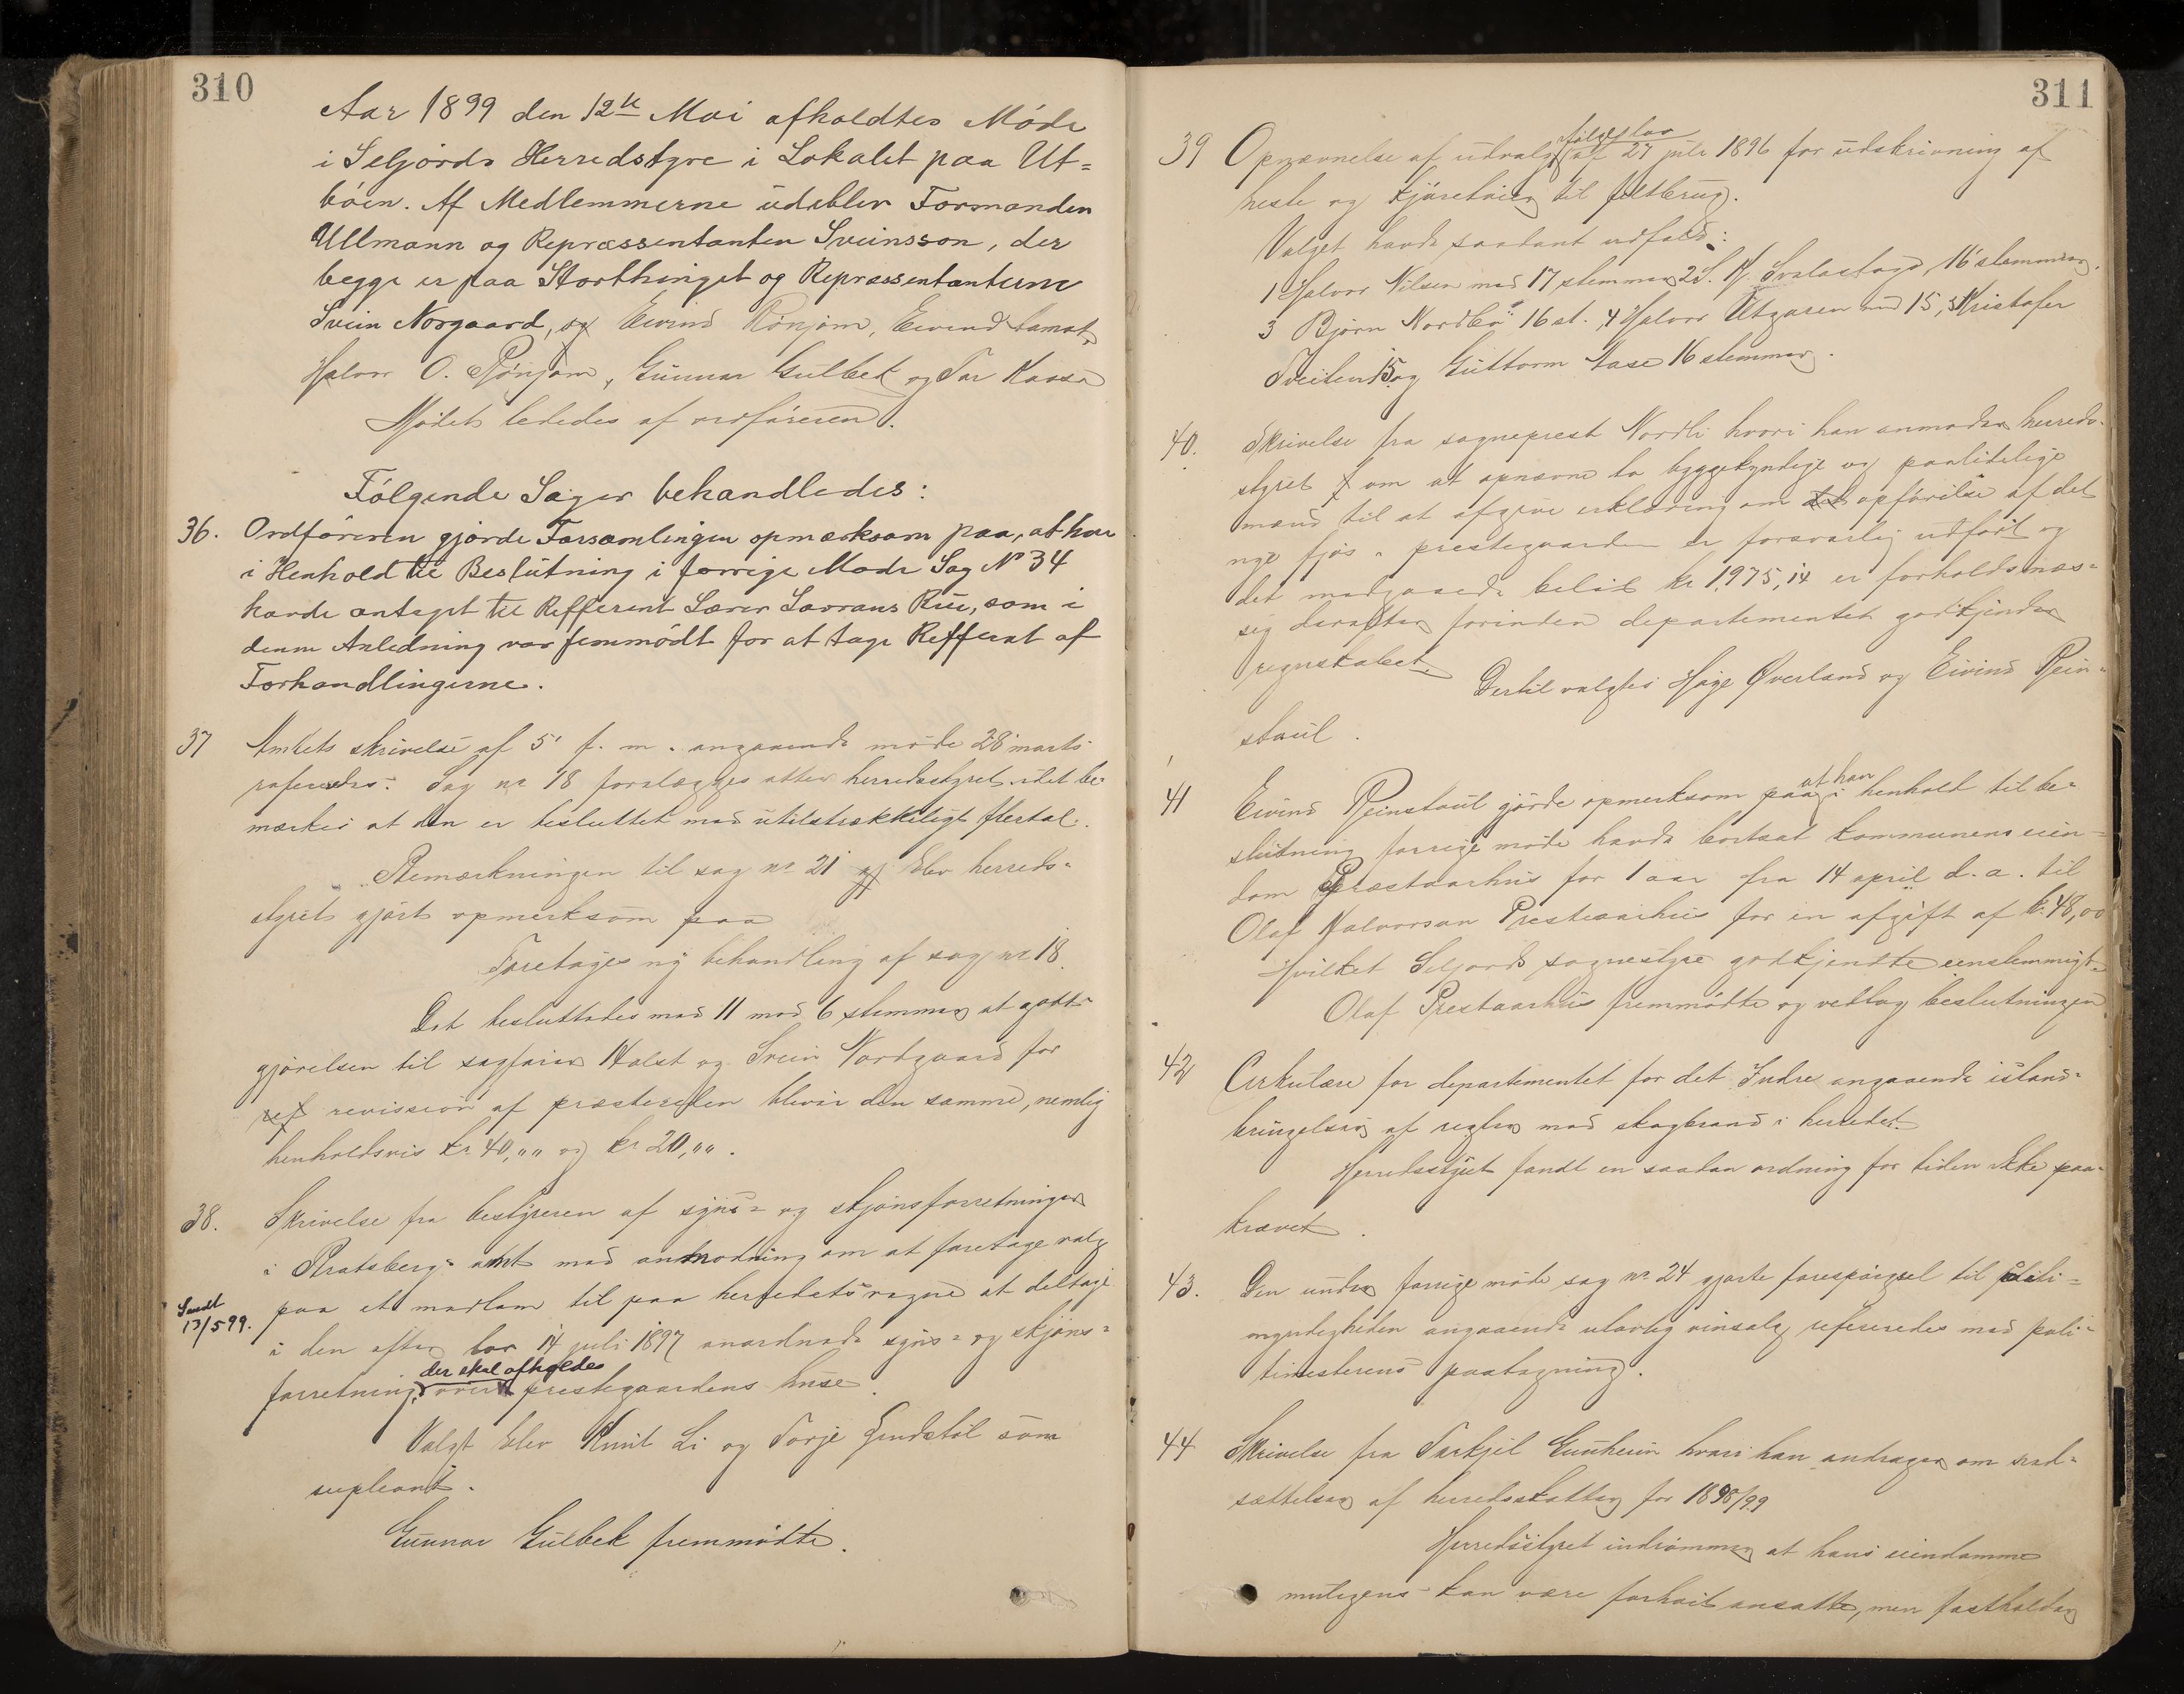 310
Aar 1899 den 12te Mai afholdtes Möde
i Seljords Herredstyre i Lokalet paa Ut=
böen. Af Medlemmerne udeblev Formanden
Ullmann og Repræssentanten Sveinsson, der
begge er paa Storthinget og Repræssentanterne
Svein Norgaard, og Eivind Rönjom, Eivind
Halvor O. Rönjom, Gunnar Gulbek og Tor Kaasa
Mödet lededes af ordföreren.
Fölgende Sager behandledes:
36. Ordföreren gjorde Forsamlingen opmærksom paa, at han
i Henhold til Beslutning i forrige Möde Sag No 34
havde antaget til Refferent Lærer Lavrans Rue, som i
denne Anledning var femmödt for at tage Refferat af
Forhandlingerne.
37 Amtets skrivelse af 5' f. m. angaaende möde 28 marts
refereredes. Sag nr 18 forelægges atter herredsstyret idet be-
mærkes at den er besluttet med utilstrækkeligt flertal.
Bemærkningen til sag nr 21 blev herreds-
styret gjort opmerksom paa
Foretages ny behandling af sag nr 18.
Det besluttedes med 11 mod 6 stemmer at godt-
gjörelsen til sagförer Holst og Svein Nordgaard for
ref revission af præstereften bliver den samme, nemlig
henholdsvis kr 40,"" og kr 20,"".
38. Skrivelse fra bestyreren af syns- og skjönsforretninger
i Bratsberg- amt med anmodning om at foretage valg
paa et medlem til paa herredets vegne at deltage
Sendt
13/5 99.
i den efter lov 14 juli 1897 anordnede syns- og skjöns-
forretning der skal afholdes over prestegaardens huse.
Valgt blev Knut Li og Torje Grudstöl som
supleant.
Gunnar Gulbek fremmödte.
311
39 Opnævnelse af udvalg ifölge lov af 27 juli 1896 for udskrivning af
heste og kjöretöier til feltbrug.
Valget havde saadant udfald:
1 Halvor Nilsen med 17 stemmer, 2 S. H. Svalastoga, 16 stemmer.
3 Björn Nordbö 16 st. 4 Halvor Utgaren med 15, 5 Kristofer
Tveiten 15 og Guttorm Aase 16 stemmer.
40. Skrivelse fra sogneprest Nordli hvori han anmoder herreds-
styret om at opnævne to byggekyndige og paalitelige
mænd til at afgive erklæring om det opförelse af det
nye fjös i prestegaarden er forsvarlig udfört og
det medgaaede belöb kr 1,975,14 er forholdsmæs-
sig derefter forinden departementet godkjender
regnskabet.
Dertil valgtes Hage Överland og Eivind Rein-
staul.
41 Eivind Reinstaul gjorde opmerksom paa at han i henhold til be-
slutning forrige möde havde bortsat kommunens eien-
dom Præstaarhus for 1 aar fra 14 april d. a. til
Olaf Halvorsen Prestaarhus for en afgift af kr. 48,00
Hvilket Seljords sognestyre godkjendte eenstemmigt.
Olaf Prestaarhus fremmödte og vedtog beslutningen
42 Cirkulære for departementet for det Indre angaaende istand-
bringelsen af regler mod skogbrand i herredet.
Herredsstyret fandt en saadan ordning for tiden ikke paa-
krævet.
43. Den under forrige möde sag nr. 24 gjorte forespörgsel til politi-
myndigheden angaaende ulovlig vinsalg refereredes med poli-
timesterens paategning.
44 Skrivelse fra Torkjel Gunheim hvori han andrager om ned-
sættelsen af herredsskatten for 1898/99
Herredsstyret indrömmer at hans eiendomme
muligens kan være forhöit ansatte, men fastholder